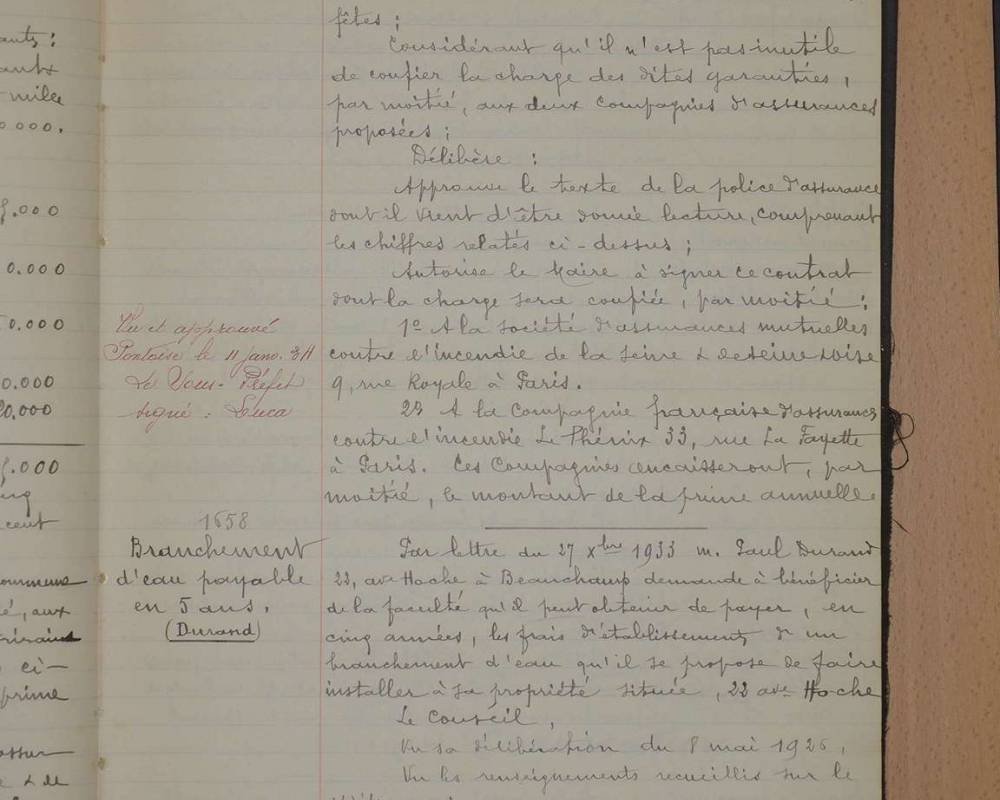 autz :
antx
mille
0.000.
5.000
0.000
0.000
0.000
20.000
5.000
cent
é, aux
ci-
prime
& de
fêtes ;
Considérant qu'il n'est pas inutile
de confier la charge des dites garanties,
par moitié, aux deux Compagnies d'assurances
proposées ;
Délibère :
Approuve le texte de la police d'assurance
dont il vient d'être donné lecture, comprenant
les chiffres relatés ci-dessus ;
Autorise le Maire à signer ce contrat
dont la charge sera confiée, par moitié :
1º A la société d'assurances mutuelles
contre l'incendie de la Seine & de Seine & Oise
9, rue Royale à Paris.
2º A la Compagnie française d'assurances
contre l'incendie Le Phénix 33, rue La Fayette
à Paris. Ces Compagnies encaisseront, par
moitié, le montant de la prime annuelle.
Vu et approuvé
Pontoise le 11 janv. 34
Le Sous-Préfet
signé :
1658
Branchement
d'eau payable
en 5 ans.
(Durand)
Par lettre du 27 Xbre 1933 M. Paul Durand
22, ave Hoche à Beauchamp demande à bénéficier
de la faculté qu'il peut obtenir de payer, en
cinq années, les frais d'établissement d'un
branchement d'eau qu'il se propose de faire
installer à sa propriété située, 22 ave Hoche
Le Conseil,
Vu sa délibération du 8 mai 1926,
Vu les renseignements recueillis sur le